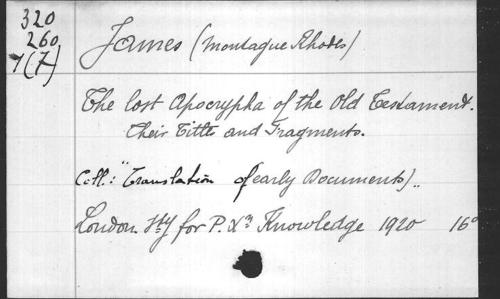 320
260
7(7)
James (Montague Rhodes)
The lost Apocrypha of the Old Testament.
Their Titles and Fragments.
Coll: "Translation of early Documents)..
London. Sty for P. Xn Knowledge 1920 16°